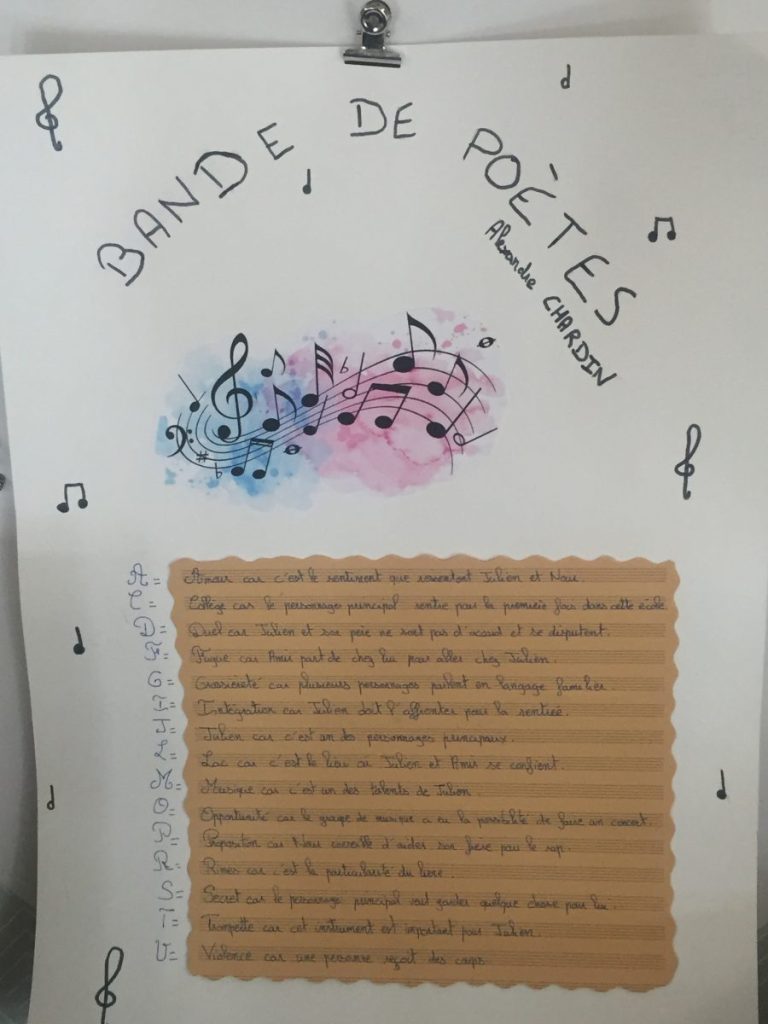 BANDE DE POÈTES
Alexandre CHARDIN
A= Amour car c'est le sentiment que ressentent Julien et Nour.
C= Collège car le personnage principal rentre pour la première fois dans cette école
D= Duel car Julien et son père ne sont pas d'acord et se disputent.
F= Fugue car Amir part de chez lui pour aller chez Julien.
G= Grossièreté car plusieurs personnages parlent en langage familier
I= Intégration car Julien doit l'affronter pour la rentrée.
J= Julien car c'est un des personnages principaux.
L= Lac car c'est le lieu où Julien et Amir se confient.
M= Musique car c'est un des talents de Julien.
O= Opportunité car le groupe de musique a eu la possibilité de faire un concert.
P= Proposition car Nour conseille d'aider son frère par le rap.
R= Rimes car c'est la particularité du livre.
S= Secret car le personnage principal veut garder quelque chose pour lui.
T= Trompette car cet instrument est important pour Julien.
V= Violence car une personne reçoit des coups.